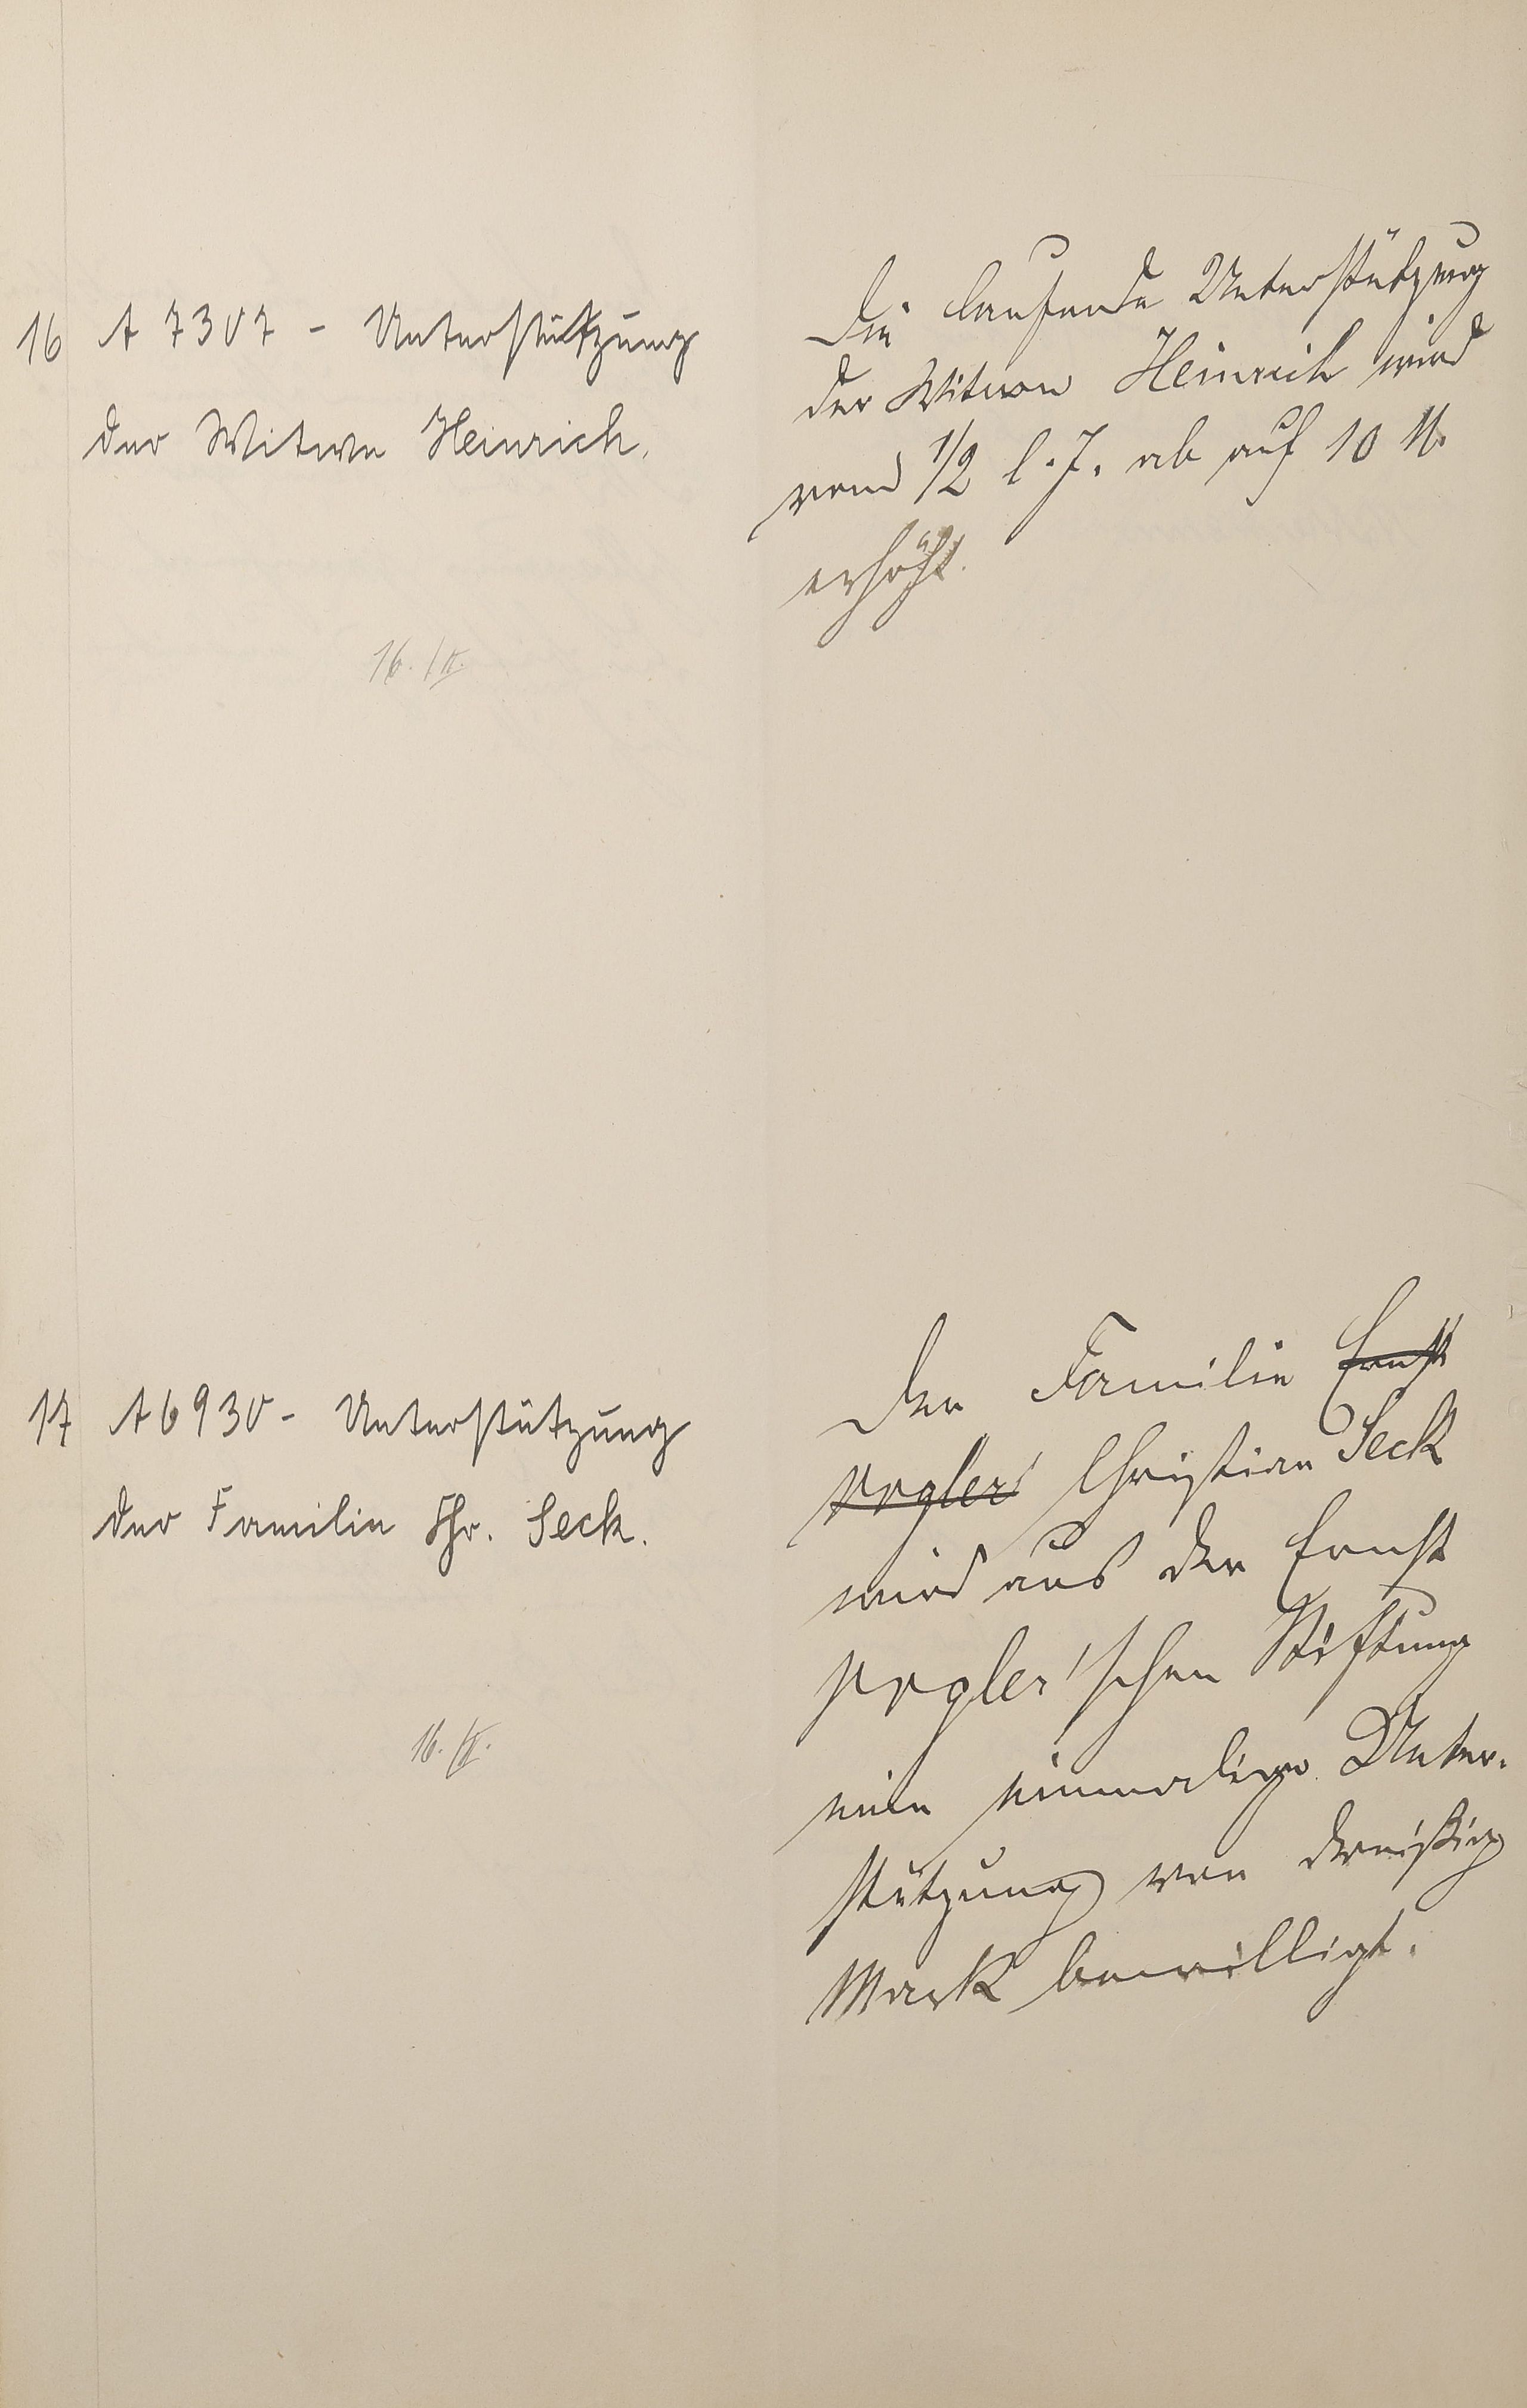 16 A 7307 - Unterstützung
der Witwe Heinrich.
16. /II.
Die laufende Unterstützung
der Witwe Heinrich wird
vom 1/2 l. J. ab auf 10 M.
erhöht.
17 A 6930 - Unterstützung
der Familie Chr. Seck.
16. /II.
Der Familie Ernst
Pogler' Christian Seck
wird aus der Ernst
Pogler'schen Stiftung
eine einmalige Unter-
stützung von dreißig
Mark bewilligt.